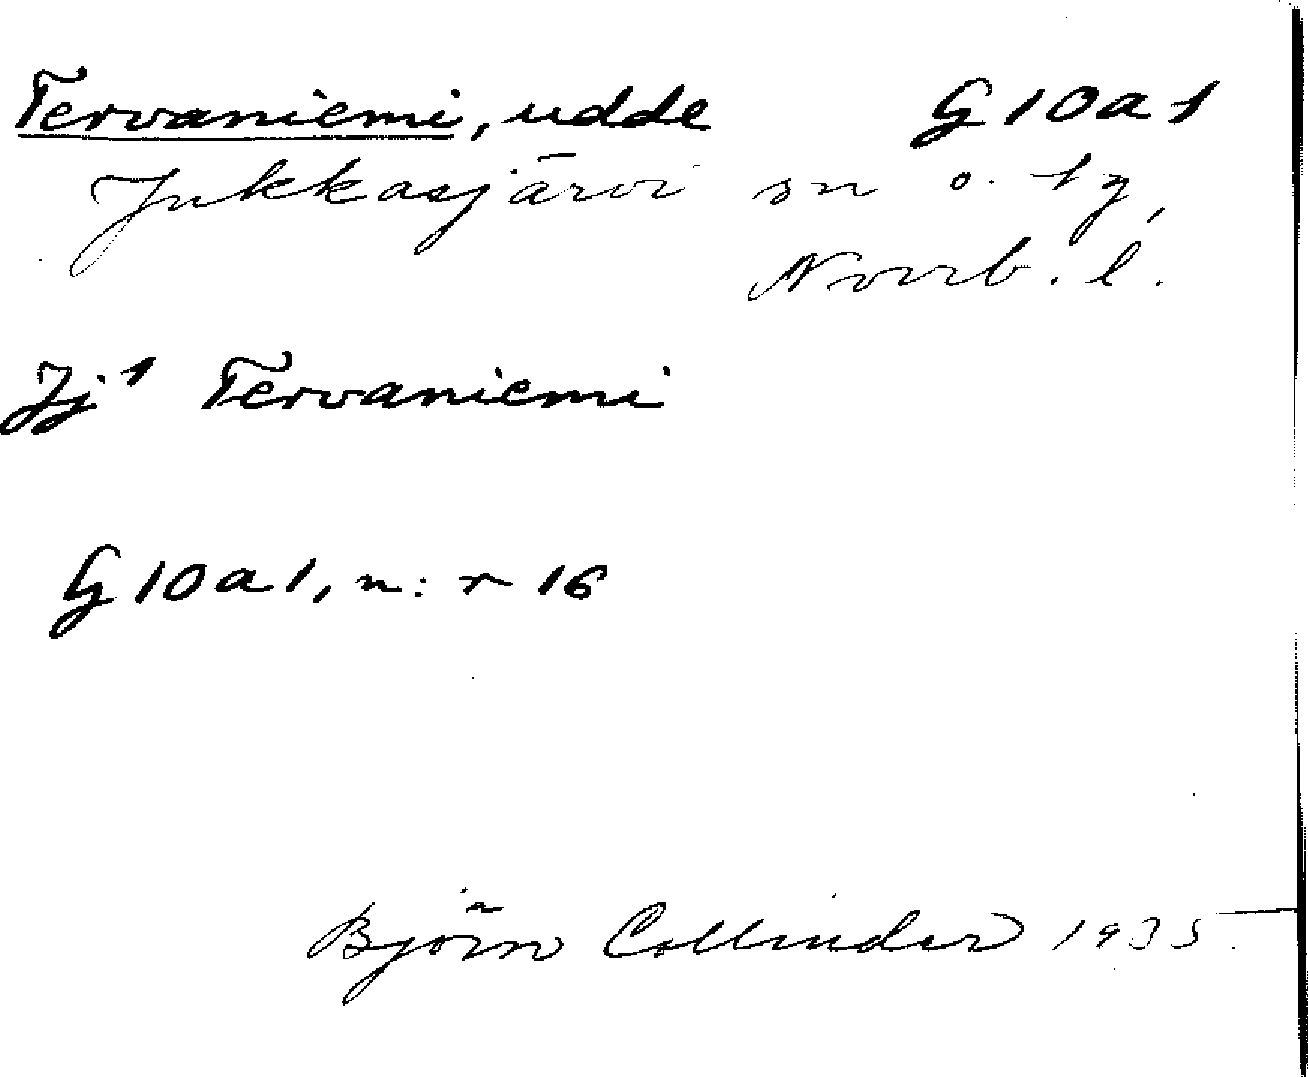 Tervaniemi, udde G 10 a 1
Jukkasjärvi sn o. tg,
Norrb. l.
Jj 1 Tervaniemi
G 10 a 1, n:r 16
Björn Collinder 1935.